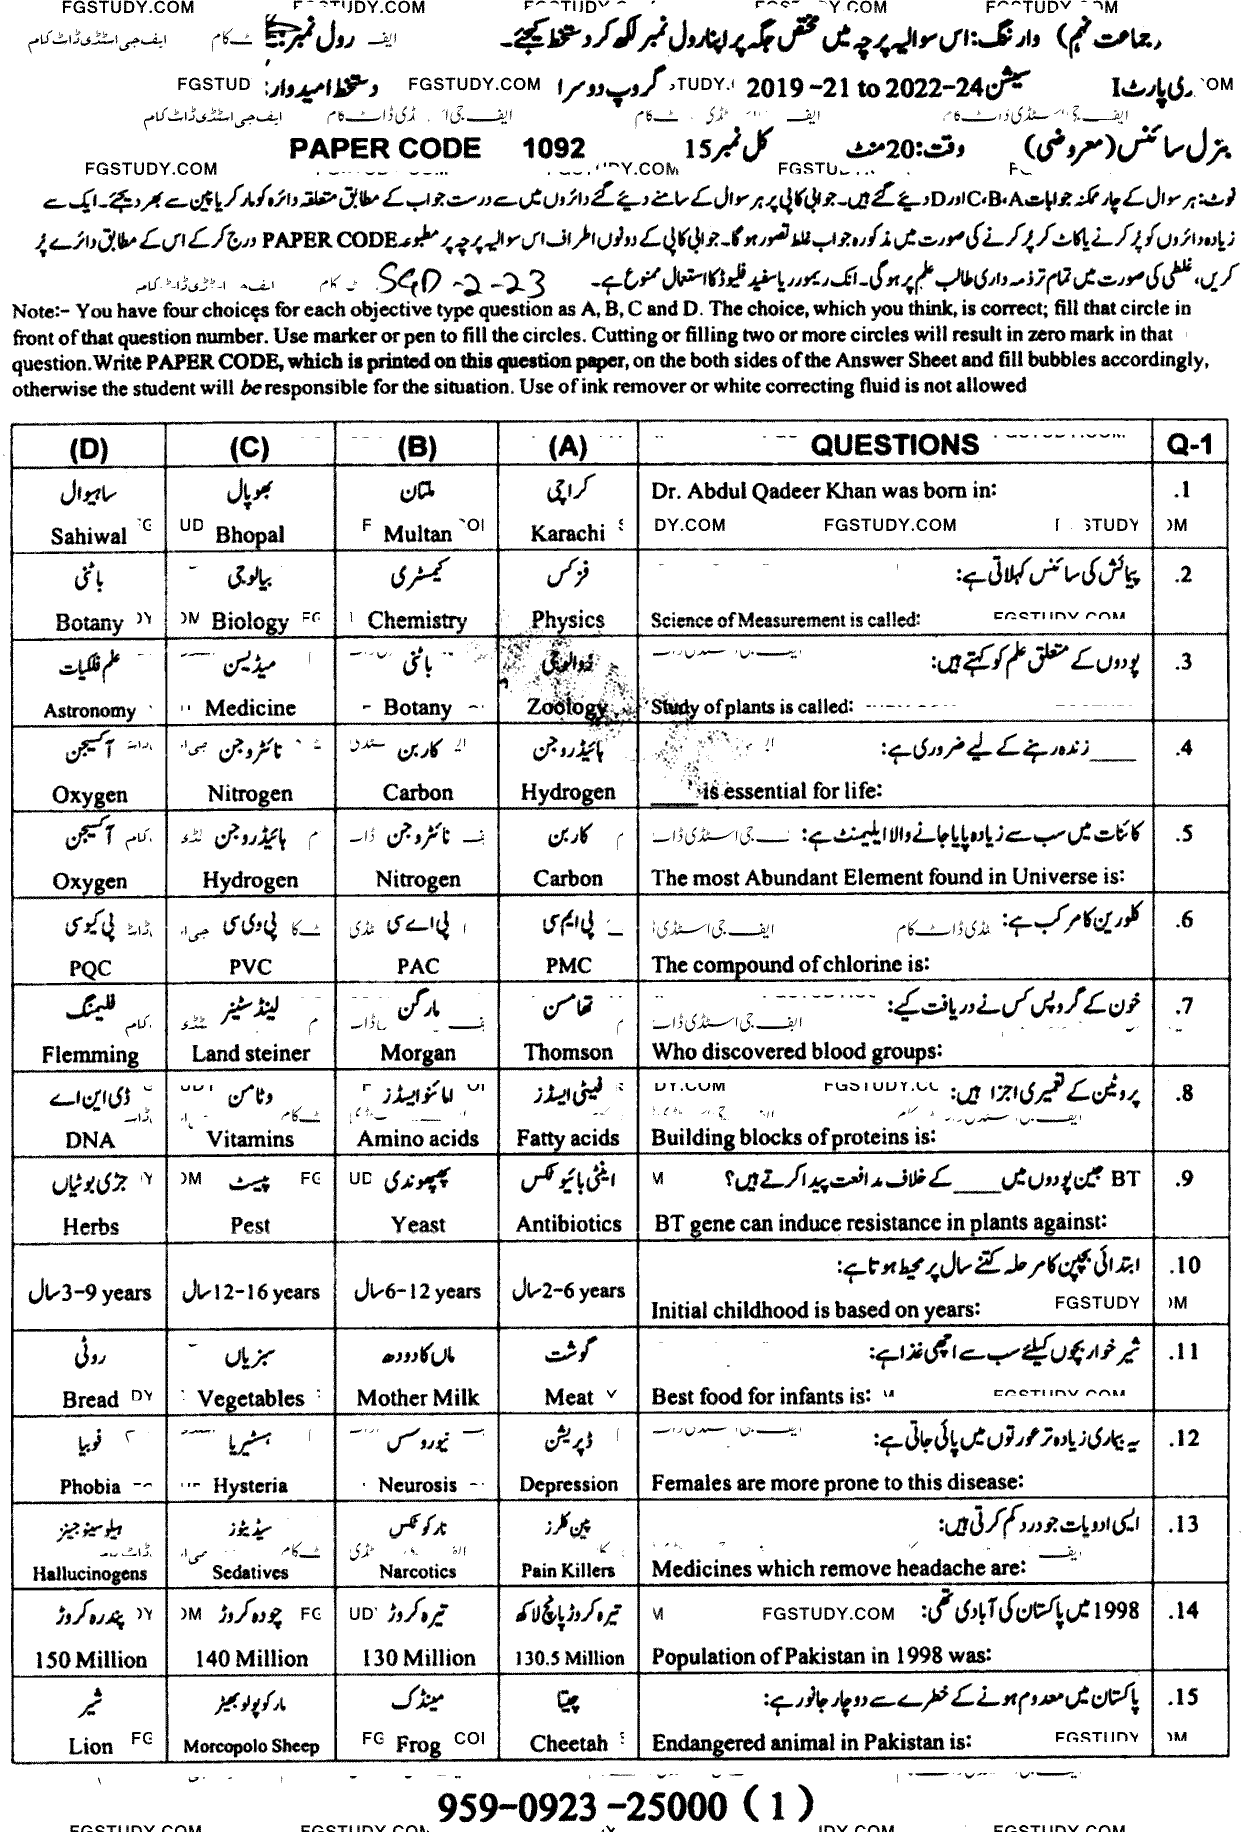 FGSTUDY.COM
(جماعت نہم) وارننگ: اس سوالیہ پرچہ میں مختص جگہ پر اپنا رول نمبر لکھ کر دستخط کیجئے۔ رول نمبر
ری پارٹ I سیشن 2019-21 to 2022-24 گروپ دوسرا دستخط امیدوار:
جنرل سائنس (معروضی) وقت: 20 منٹ کل نمبر 15 PAPER CODE 1092
FGSTUDY.COM
نوٹ: ہر سوال کے چار ممکنہ جوابات C، B، A اور D دیئے گئے ہیں۔ جوابی کاپی پر ہر سوال کے سامنے دیئے گئے دائروں میں سے درست جواب کے مطابق متعلقہ دائرہ کو مارکر یا پین سے بھر دیجئے۔ ایک سے
زیادہ دائروں کو پُر کرنے یا کاٹ کر پُر کرنے کی صورت میں مذکورہ جواب غلط تصور ہوگا۔ جوابی کاپی کے دونوں اطراف اس سوالیہ پرچہ پر مطبوعہ PAPER CODE درج کر کے اس کے مطابق دائرے پُر
کریں، غلطی کی صورت میں تمام تر ذمہ داری طالب علم پر ہوگی۔ انک ریموور یا سفید فلیوڈ کا استعمال ممنوع ہے۔ SGD-2-23
Note:- You have four choices for each objective type question as A, B, C and D. The choice, which you think, is correct; fill that circle in
front of that question number. Use marker or pen to fill the circles. Cutting or filling two or more circles will result in zero mark in that
question. Write PAPER CODE, which is printed on this question paper, on the both sides of the Answer Sheet and fill bubbles accordingly,
otherwise the student will be responsible for the situation. Use of ink remover or white correcting fluid is not allowed
(D) (C) (B) (A) QUESTIONS Q-1
ساہیوال بھوپال ملتان کراچی Dr. Abdul Qadeer Khan was born in: .1
Sahiwal Bhopal Multan Karachi FGSTUDY.COM
باٹنی بیالوجی کیمسٹری فزکس پیمائش کی سائنس کہلاتی ہے: .2
Botany Biology Chemistry Physics Science of Measurement is called:
علم فلکیات میڈیسن باٹنی ذوالوجی پودوں کے متعلق علم کو کہتے ہیں: .3
Astronomy Medicine Botany Zoology Study of plants is called:
آکسیجن نائٹروجن کاربن ہائیڈروجن ____زندہ رہنے کے لیے ضروری ہے: .4
Oxygen Nitrogen Carbon Hydrogen ____ is essential for life:
آکسیجن ہائیڈروجن نائٹروجن کاربن کائنات میں سب سے زیادہ پایا جانے والا ایلیمنٹ ہے: .5
Oxygen Hydrogen Nitrogen Carbon The most Abundant Element found in Universe is:
پی کیو سی پی وی سی پی اے سی پی ایم سی کلورین کا مرکب ہے: .6
PQC PVC PAC PMC The compound of chlorine is:
فلیمنگ لینڈ سٹینر مارگن تھامسن خون کے گروپس کس نے دریافت کیے: .7
Flemming Land steiner Morgan Thomson Who discovered blood groups:
ڈی این اے وٹامن امائنو ایسڈز فیٹی ایسڈز پروٹین کے تعمیری اجزا ہیں: .8
DNA Vitamins Amino acids Fatty acids Building blocks of proteins is:
جڑی بوٹیاں پیسٹ پھپھوندی اینٹی بائیوٹکس BT جین پودوں میں ____ کے خلاف مدافعت پیدا کرتے ہیں؟ .9
Herbs Pest Yeast Antibiotics BT gene can induce resistance in plants against:
ابتدائی بچپن کا مرحلہ کتنے سال پر محیط ہوتا ہے: .10
3-9 years سال 12-16 years سال 6-12 years سال 2-6 years سال Initial childhood is based on years:
روٹی سبزیاں ماں کا دودھ گوشت شیر خوار بچوں کیلئے سب سے اچھی غذا ہے: .11
Bread Vegetables Mother Milk Meat Best food for infants is:
فوبیا ہسٹیریا نیوروسس ڈپریشن یہ بیماری زیادہ تر عورتوں میں پائی جاتی ہے: .12
Phobia Hysteria Neurosis Depression Females are more prone to this disease:
ہیلوسینوجینز سیڈیٹوز نارکوٹکس پین کلرز ایسی ادویات جو درد کم کرتی ہیں: .13
Hallucinogens Sedatives Narcotics Pain Killers Medicines which remove headache are:
پندرہ کروڑ چودہ کروڑ تیرہ کروڑ تیرہ کروڑ پانچ لاکھ 1998 میں پاکستان کی آبادی تھی: FGSTUDY.COM .14
150 Million 140 Million 130 Million 130.5 Million Population of Pakistan in 1998 was:
شیر مارکوپولو بھیڑ مینڈک چیتا پاکستان میں معدوم ہونے کے خطرے سے دوچار جانور ہے: .15
Lion Morcopolo Sheep Frog Cheetah Endangered animal in Pakistan is:
959-0923-25000 (1)